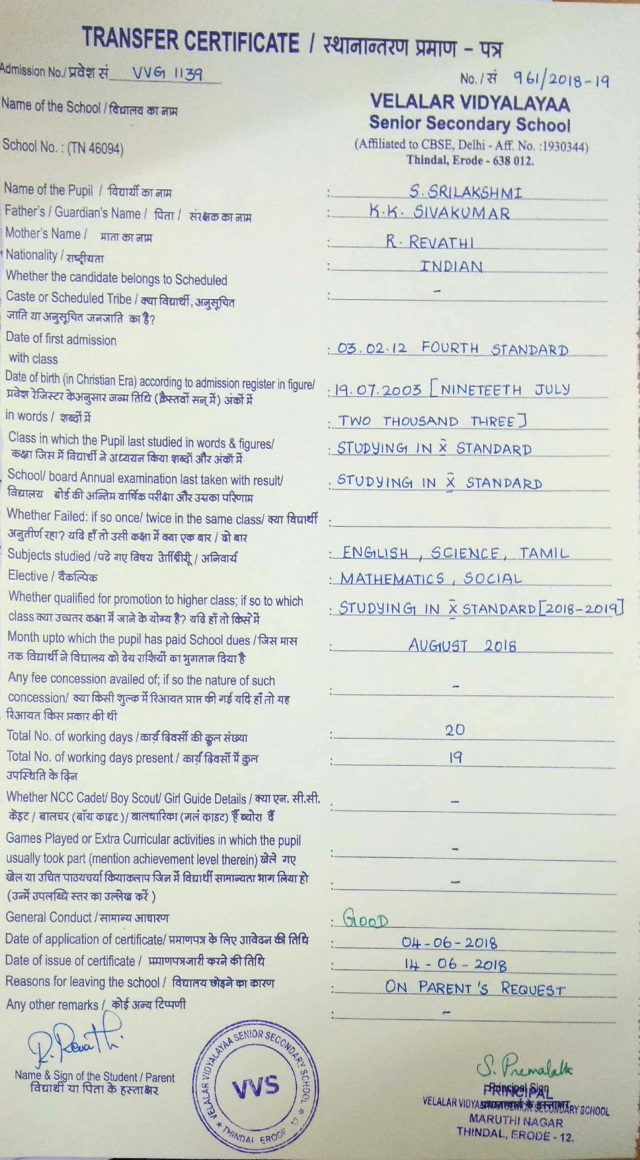 TRANSFER CERTIFICATE / स्थानान्तरण प्रमाण - पत्र
Admission No./प्रवेश सं VVG 1139
No./सं 961/2018-19
Name of the School / विद्यालय का नाम
VELALAR VIDYALAYAA
Senior Secondary School
School No. : (TN 46094)
(Affiliated to CBSE, Delhi - Aff. No. :1930344)
Thindal, Erode - 638 012.
Name of the Pupil / विद्यार्थी का नाम : S. SRILAKSHMI
Father's / Guardian's Name / पिता / संरक्षक का नाम : K.K. SIVAKUMAR
Mother's Name / माता का नाम : R. REVATHI
Nationality / राष्ट्रीयता : INDIAN
Whether the candidate belongs to Scheduled : -
Caste or Scheduled Tribe / क्या विद्यार्थी, अनुसूचित
जाति या अनुसूचित जनजाति का है?
Date of first admission
with class : 03.02.12 FOURTH STANDARD
Date of birth (in Christian Era) according to admission register in figure/
प्रवेश रेजिस्टर केअनुसार जन्म तिथि (क्रैस्तवों सन् में) अंकों में : 19.07.2003 [NINETEETH JULY
in words / शब्दों में : TWO THOUSAND THREE]
Class in which the Pupil last studied in words & figures/
कक्षा जिस में विद्यार्थी ने अध्ययन किया शब्दों और अंकों में : STUDYING IN X STANDARD
School/ board Annual examination last taken with result/
विद्यालय बोर्ड की अन्तिम वार्षिक परीक्षा और उसका परिणाम : STUDYING IN X STANDARD
Whether Failed: if so once/ twice in the same class/ क्या विद्यार्थी
अनुतीर्ण रहा? यदि हाँ तो उसी कक्षा में क्या एक बार / दो बार :
Subjects studied /पढे गए विषय / अनिवार्य : ENGLISH , SCIENCE, TAMIL
Elective / वैकल्पिक : MATHEMATICS , SOCIAL
Whether qualified for promotion to higher class; if so to which
class क्या उच्चतर कक्षा में जाने के योग्य है? यदि हाँ तो किस में : STUDYING IN X STANDARD [2018-2019]
Month upto which the pupil has paid School dues / जिस मास
तक विद्यार्थी ने विद्यालय को देय राशियों का भुगतान दिया है : AUGUST 2018
Any fee concession availed of; if so the nature of such
concession/ क्या किसी शुल्क में रिआयत प्राप्त की गई यदि हाँ तो यह : -
रिआयत किस प्रकार की थी
Total No. of working days / कार्य दिवसों की कुल संख्या : 20
Total No. of working days present / कार्य दिवसों में कुल : 19
उपस्थिति के दिन
Whether NCC Cadet/ Boy Scout/ Girl Guide Details / क्या एन. सी.सी. : -
केडट / बालचर (बॉय काइट )/ बालचारिका (गर्ल काइट) हैं ब्योरा दें
Games Played or Extra Curricular activities in which the pupil
usually took part (mention achievement level therein) खेले गए : -
खेल या उचित पाठयचर्या कियाकलाप जिन में विद्यार्थी सामान्यता भाग लिया हो : -
(उनमें उपलब्धि स्तर का उल्लेख करें )
General Conduct / सामान्य आचारण : GOOD
Date of application of certificate/ प्रमाणपत्र के लिए आवेदन की तिथि : 04-06-2018
Date of issue of certificate / प्रमाणपत्रजारी करने की तिथि : 14-06-2018
Reasons for leaving the school / विद्यालय छोड़ने का कारण : ON PARENT'S REQUEST
Any other remarks / कोई अन्य टिप्पणी : -
R. Revathi.
Name & Sign of the Student / Parent
विद्यार्थी या पिता के हस्ताक्षर
VELALAR VIDYALAYAA SENIOR SECONDARY SCHOOL
VVS
THINDAL ERODE - 12
S. Premalatha
Principal Sign
PRINCIPAL
VELALAR VIDYALAYAA SENIOR SECONDARY SCHOOL
MARUTHI NAGAR
THINDAL, ERODE - 12.